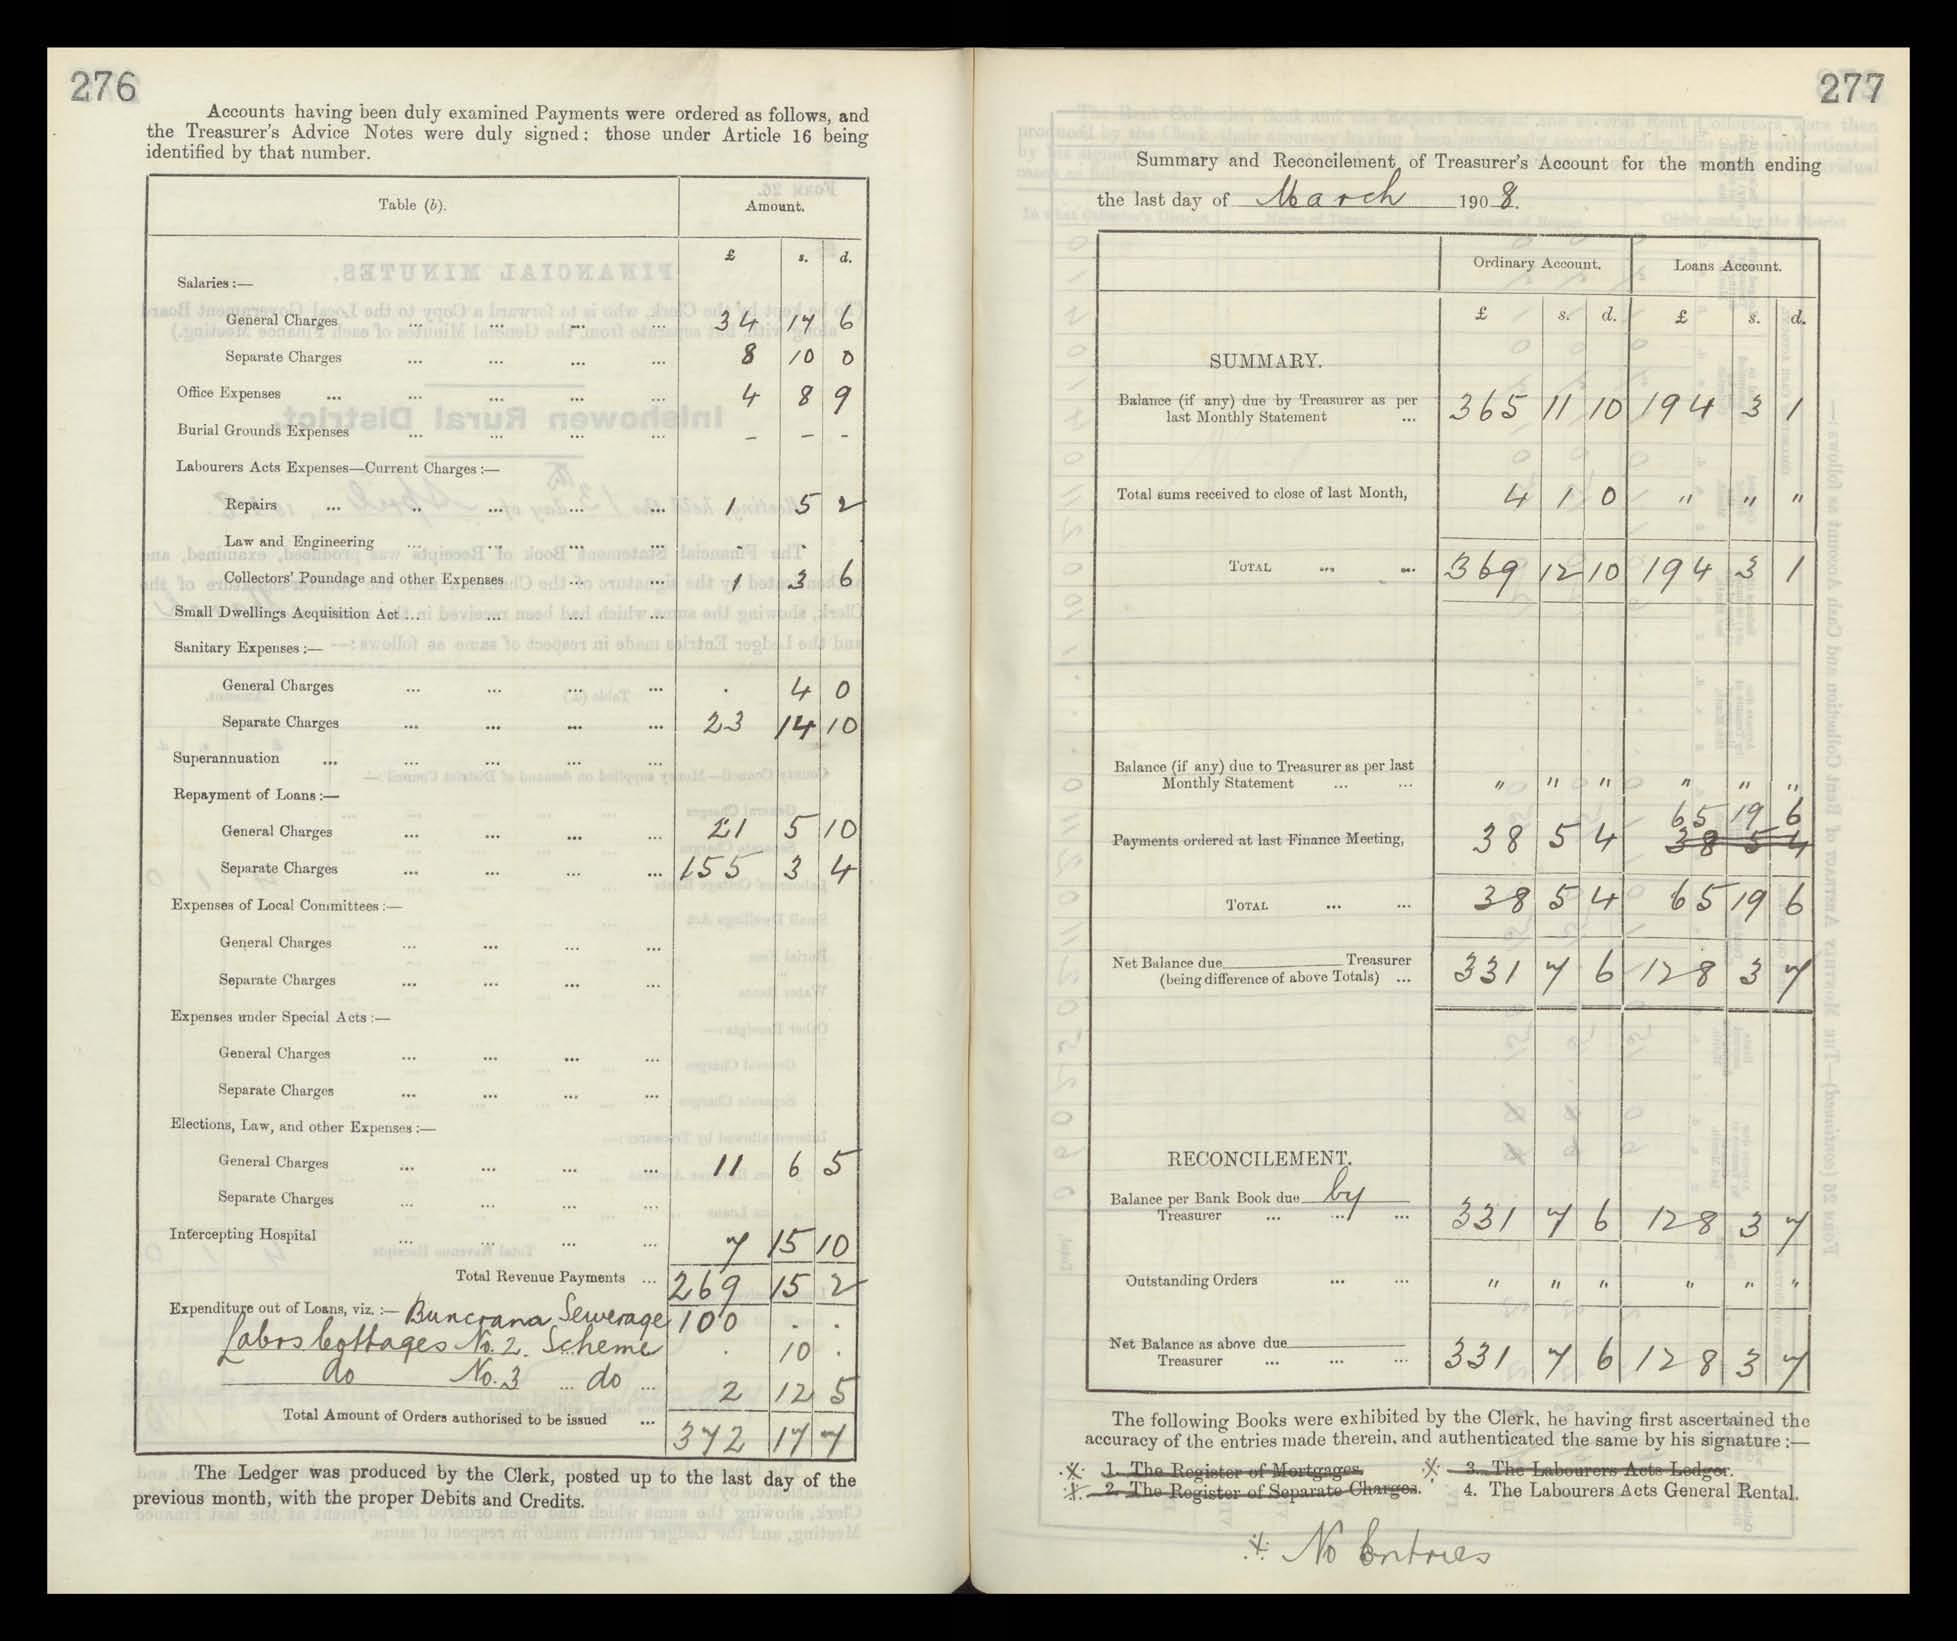 276
Accounts having been duly examined Payments were ordered as follows, and
the Treasurer's Advice Notes were duly signed: those under Article 16 being
identified by that number.
Table (b). Amount.
£ s. d.
Salaries :—
General Charges ... ... ... ... 34 17 6
Separate Charges ... ... ... ... 8 10 0
Office Expenses ... ... ... ... ... 4 8 9
Burial Grounds Expenses ... ... ... ... – – –
Labourers Acts Expenses—Current Charges :—
Repairs ... .. ... ... ... 1 5 2
Law and Engineering ... ... ... ... - -
Collectors' Poundage and other Expenses ... ... 1 3 6
Small Dwellings Acquisition Act ... ... ... ...
Sanitary Expenses :—
General Charges ... ... ... ... . 4 0
Separate Charges ... ... ... ... 23 14 10
Superannuation ... ... ... ... ...
Repayment of Loans :—
General Charges ... ... ... ... 21 5 10
Separate Charges ... ... ... ... 155 3 4
Expenses of Local Committees :—
General Charges ... ... ... ...
Separate Charges ... ... ... ...
Expenses under Special Acts :—
General Charges ... ... ... ...
Separate Charges ... ... ... ...
Elections, Law, and other Expenses :—
General Charges ... ... ... ... 11 6 5
Separate Charges ... ... ... ...
Intercepting Hospital ... ... ... ... 7 15 10
Total Revenue Payments ... 269 15 2
Expenditure out of Loans, viz. :— Buncrana Sewerage 100 . .
Labrs Cottages No. 2. Scheme . 10 .
do No. 3 ... do ... 2 12 5
Total Amount of Orders authorised to be issued ... 372 17 7
The Ledger was produced by the Clerk, posted up to the last day of the
previous month, with the proper Debits and Credits.
277
Summary and Reconcilement of Treasurer's Account for the month ending
the last day of March 1908.
Ordinary Account. Loans Account.
£ s. d. £ s. d.
SUMMARY.
Balance (if any) due by Treasurer as per
last Monthly Statement ... 365 11 10 194 3 1
Total sums received to close of last Month, 4 1 0 " " "
TOTAL ... ... 369 12 10 194 3 1
Balance (if any) due to Treasurer as per last
Monthly Statement ... ... " " " " " "
65 19 6
Payments ordered at last Finance Meeting, 38 5 4 38 5 4
TOTAL ... ... 38 5 4 65 19 6
Net Balance due Treasurer
(being difference of above Totals) ... 331 7 6 128 3 7
RECONCILEMENT.
Balance per Bank Book due by
Treasurer ... ... ... 331 7 6 128 3 7
Outstanding Orders ... ... " " " " " "
Net Balance as above due
Treasurer ... ... ... 331 7 6 128 3 7
The following Books were exhibited by the Clerk, he having first ascertained the
accuracy of the entries made therein, and authenticated the same by his signature :—
※ 1. The Register of Mortgages. ※ 3. The Labourers Acts Ledger.
※ 2. The Register of Separate Charges. 4. The Labourers Acts General Rental.
※ No Entries